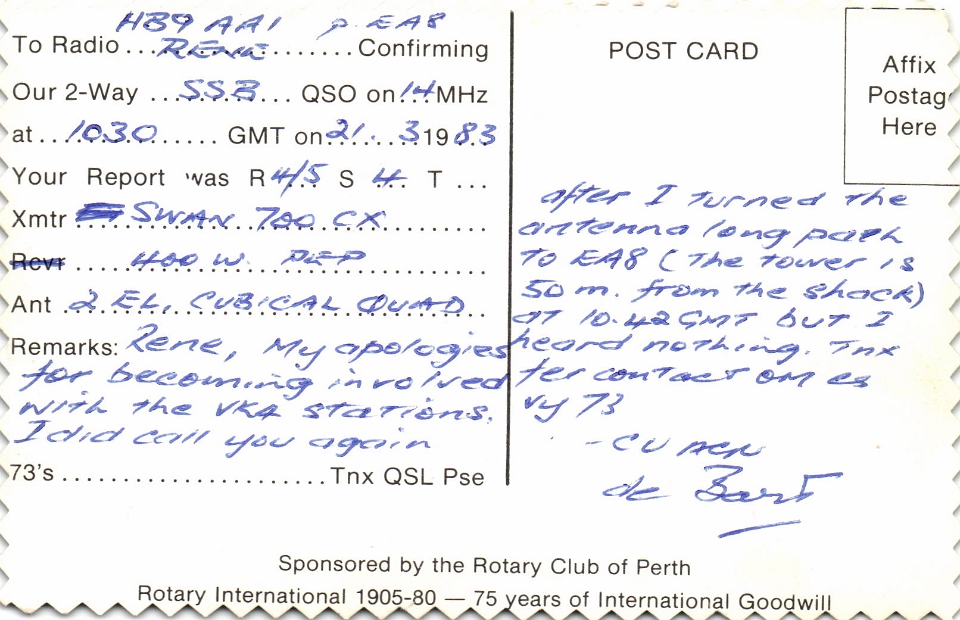 HB9 AAI p EA8
To Radio ... RENE ... Confirming
Our 2-Way ... SSB ... QSO on 14 MHz
at ... 1030 ... GMT on 21. 3 1983
Your Report was R 4/5 S 4 T ...
Xmtr SWAN 700 CX
Rcvr 400 W. PEP
Ant 2 EL, CUBICAL QUAD
Remarks: Rene, My apologies
for becoming involved
with the VK4 stations.
I did call you again
73's ... Tnx QSL Pse
POST CARD
Affix
Postag
Here
after I turned the
antenna long path
to EA8 (The tower is
50 m. from the shack)
at 10.42 GMT but I
heard nothing. Tnx
fer contact OM es
vy 73
- CU AGN
de Bart
Sponsored by the Rotary Club of Perth
Rotary International 1905-80 — 75 years of International Goodwill